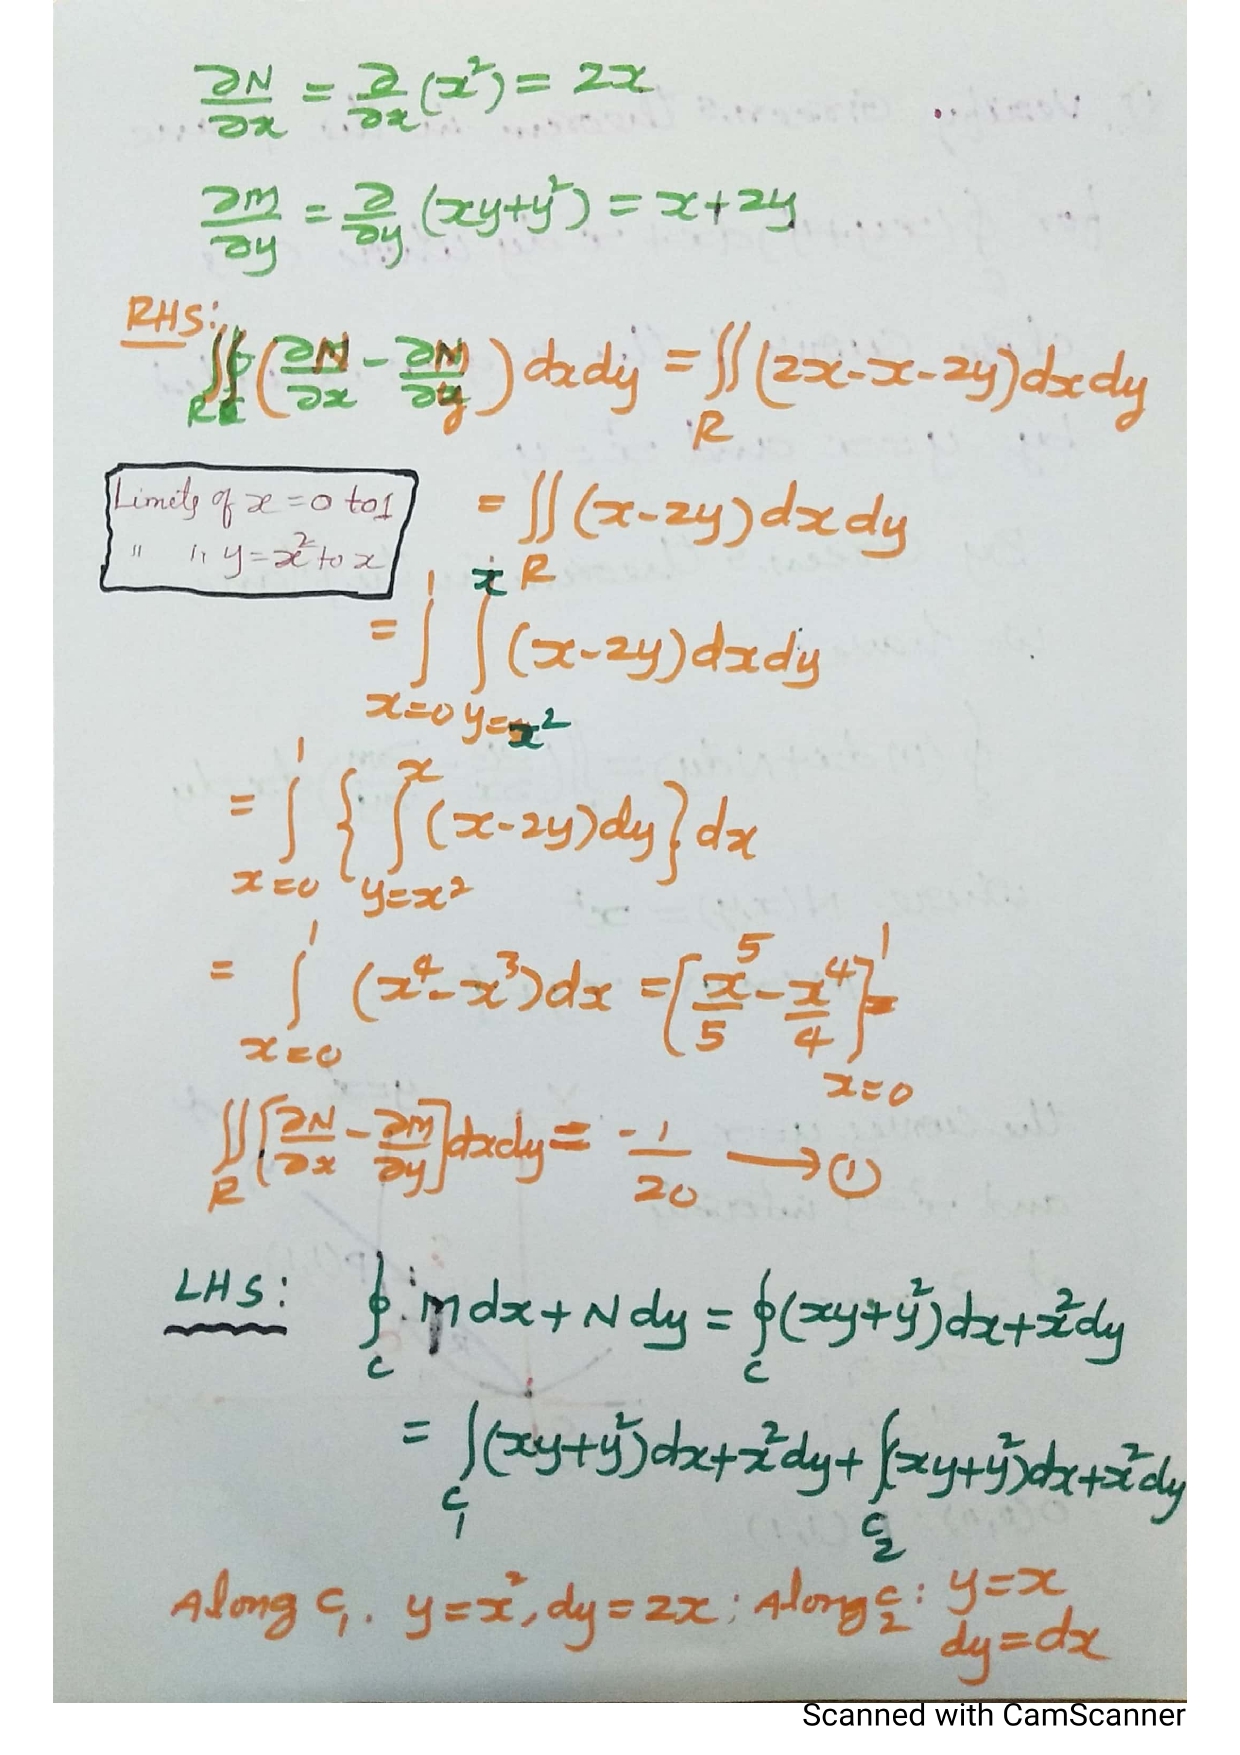 ∂N/∂x = ∂/∂x (x²) = 2x
∂M/∂y = ∂/∂y (xy+y²) = x+2y
RHS:
∬_R (∂N/∂x - ∂M/∂y) dxdy = ∬_R (2x-x-2y)dxdy
Limits of x = 0 to 1
" " y = x² to x
= ∬_R (x-2y)dxdy
= ∫_{x=0}^{1} ∫_{y=x²}^{x} (x-2y)dxdy
= ∫_{x=0}^{1} { ∫_{y=x²}^{x} (x-2y)dy } dx
= ∫_{x=0}^{1} (x⁴-x³)dx = [x⁵/5 - x⁴/4]_{x=0}^{1} =
∬_R [∂N/∂x - ∂M/∂y] dxdy = -1/20 → ①
LHS: ∮_C Mdx+Ndy = ∮_C (xy+y²)dx+x²dy
= ∫_{C₁} (xy+y²)dx+x²dy + ∫_{C₂} (xy+y²)dx+x²dy
Along C₁. y=x², dy=2x; Along C₂: y=x
dy=dx
Scanned with CamScanner